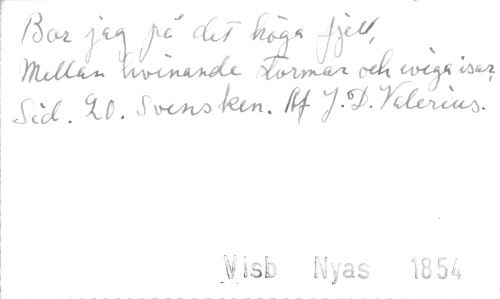 Bor jag på det höga fjell,
Mellan hvinande stormar och eviga isar,
Sid. 20. Svensken. Af J. D. Valerius.
Visb Nyas 1854